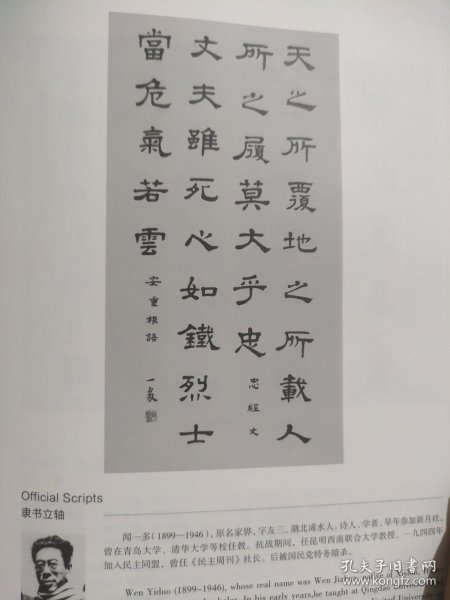 天之所覆地之所載人
所之履莫大乎忠
忠經文
丈夫雖死心如鐵烈士
當危氣若雲
安重根語
一多
Official Scripts
隶书立轴
闻一多(1899—1946),原名家骅,字友三。湖北浠水人。诗人、学者。早年参加新月社。
曾在青岛大学、清华大学等校任教。抗战期间,任昆明西南联合大学教授。一九四四年
加入民主同盟,曾任《民主周刊》社长。后被国民党特务暗杀。
Wen Yiduo (1899-1946), whose real name was Wen
In his early years,he taught at Qingdao
United University of
孔夫子旧书网